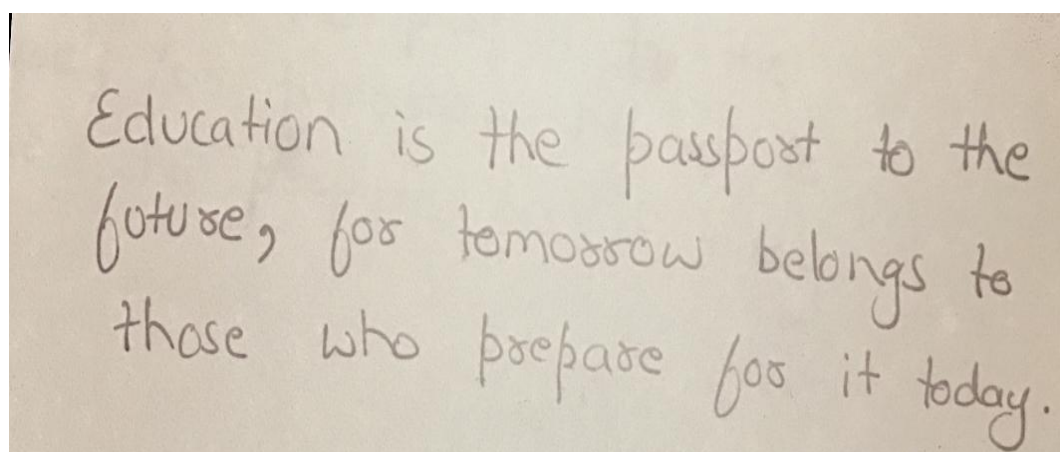 Education is the passport to the
future, for tomorrow belongs to
those who prepare for it today.